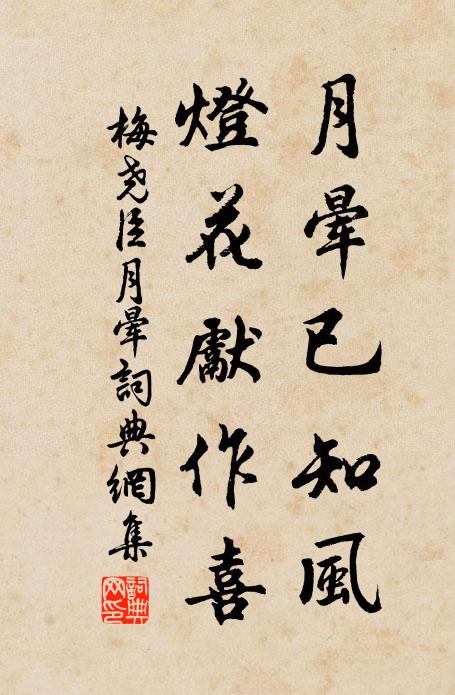 月暈已知風
燈花獻作喜
梅堯臣月暈詞典網集
詞典網印